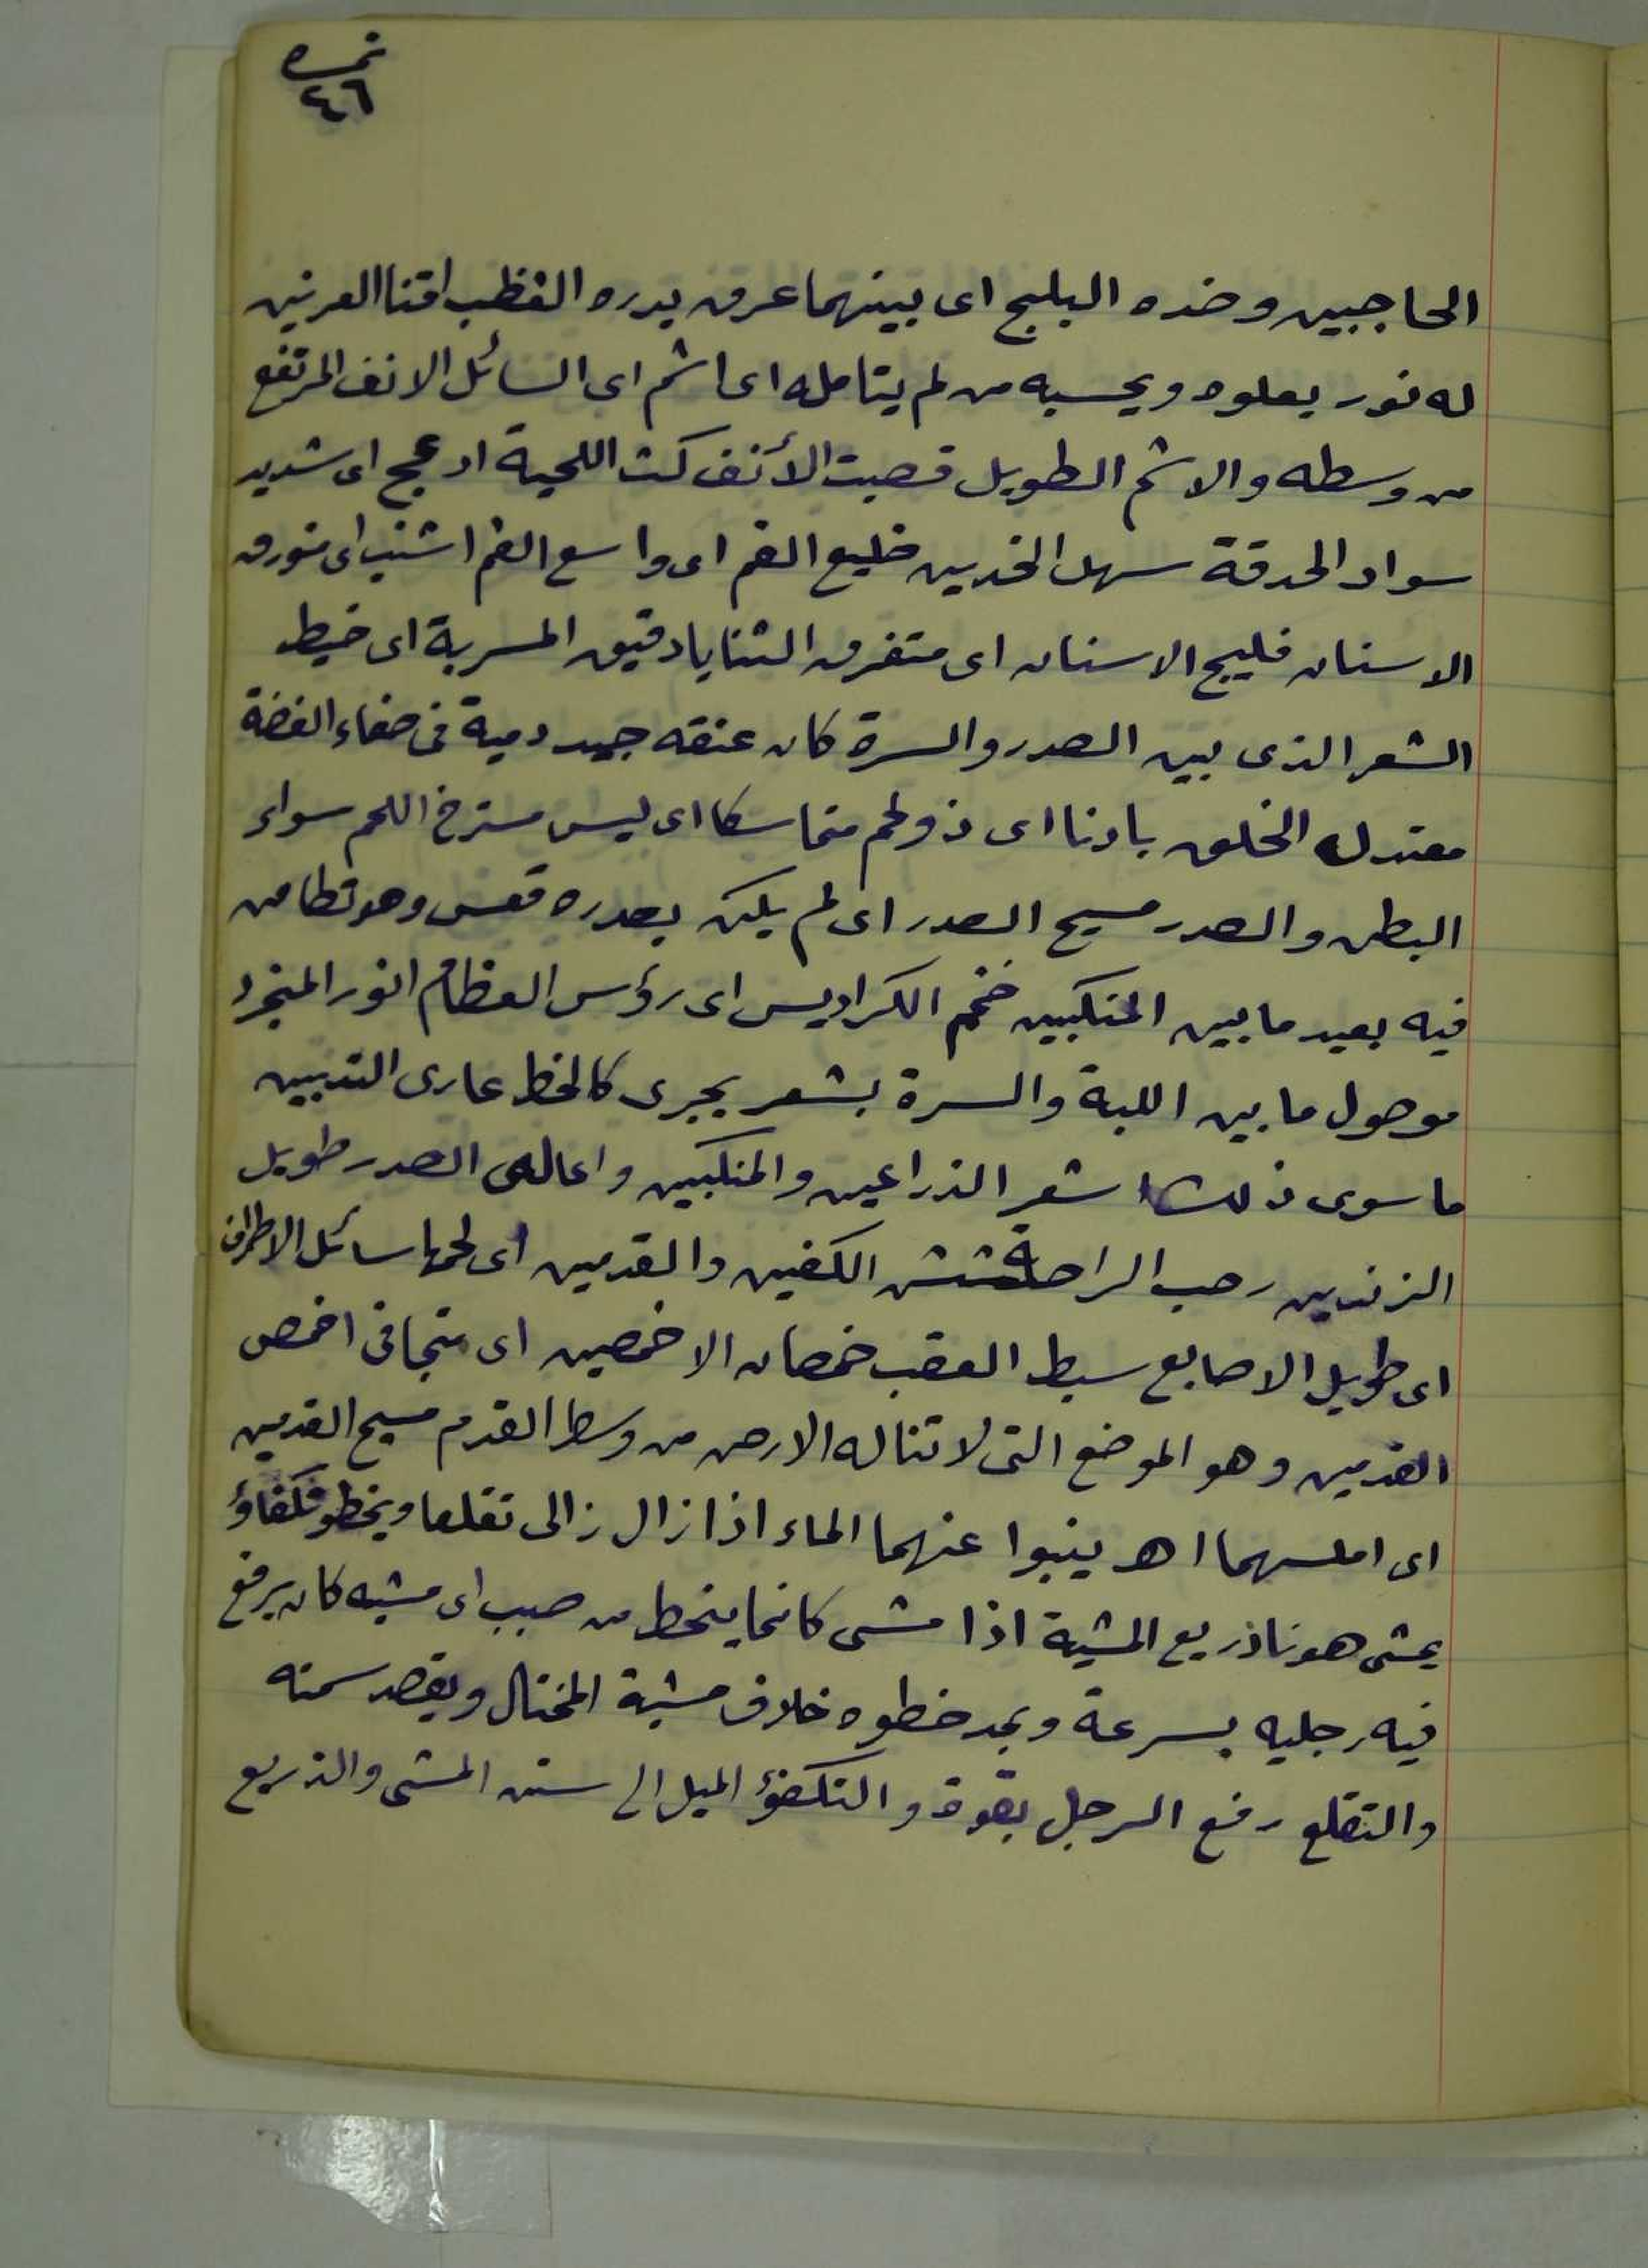 نمره
٤٦
الحاجبين وضده البلج اى بينهما عرق يدره الغظب اقنا العرنين
له نور يعلوه ويحسبه من لم يتامله اى اشم اى السائل الانف المرتفع
من وسطه والاشم الطويل قصبت الأنف كث اللحية ادعج اى شديد
سواد الحدقة سهل الخدين ضليع الفم اى واسع الفم اشنب اى
الاسنان فليج الاسنان اى متفرق الثنايا دقيق المسربة اى خيط
الشعر الذى بين الصدر والسرة كان عنقه جيد دمية فى صفاء الفضة
معتدل الخلق بادنا اى ذو لحم متماسكا اى ليس مسترخ اللحم سواء
البطن والصدر مسيح الصدر اى لم يكن بصدره قعس وهو تطامن
فيه بعيد ما بين المنكبين ضخم الكراديس اى رؤس العظام انور المنجرد
موصول ما بين اللبة والسرة بشعر يجرى كالخط عارى الثديين
ما سوى ذلك شعر الذراعين والمنكبين واعالى الصدر طويل
الزندين رحب الراحة الكفين والقدمين اى لحمها سائل الاطراف
اى طويل الاصابع سبط العقب خمصان الاخمصين اى متجافى اخمص
القدمين وهو الموضع التى لا تناله الارض من وسط القدم مسيح القدمين
اى املسهما اهـ ينبوا عنهما الماء اذا زال زالى تقلعا ويخطو تكفاؤ
يمشى هونا ذريع المشية اذا مشى كانما ينحط من صبب اى مشيه كان يرفع
فيه رجليه بسرعة ويمد خطوه خلاف مشية المختال ويقصد سمته
والتقلع رفع الرجل بقوة والتكفؤ الميل الى سنن المشى والذريع